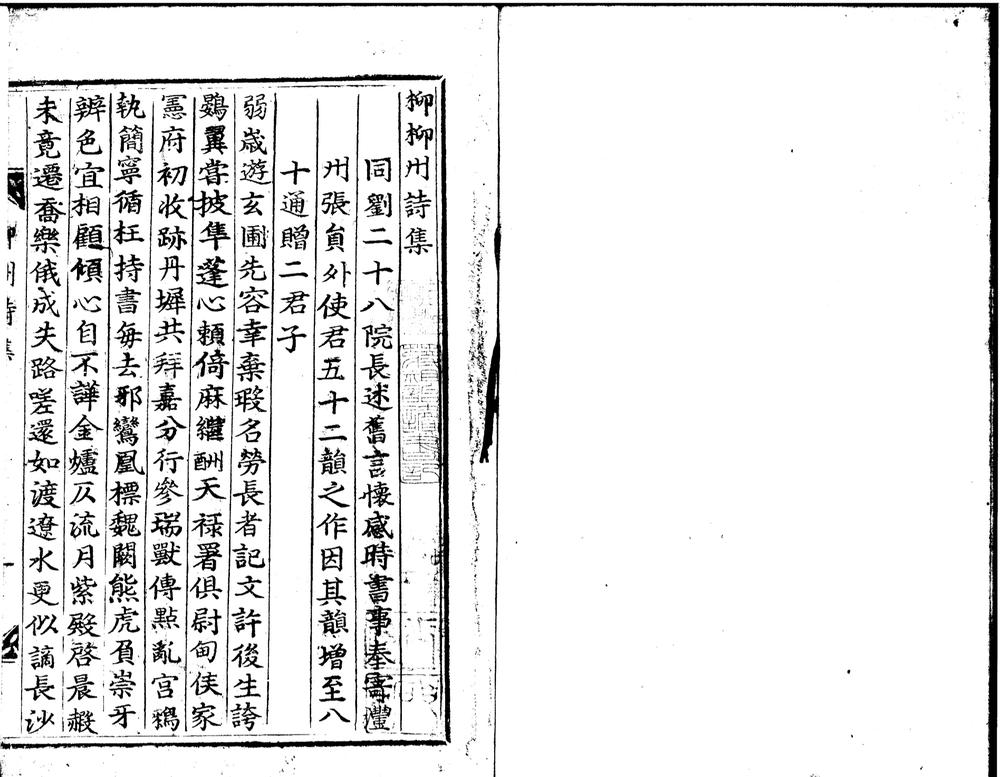 柳柳州詩集
同劉二十八院長述舊言懷感時書事奉寄灃
州張員外使君五十二韻之作因其韻增至八
十通贈二君子
弱歲遊玄圃先容幸棄瑕名勞長者記文許後生誇
鷃翼甞披隼蓬心賴倚麻繼酬天祿署俱尉甸侯家
憲府初收跡丹墀共拜嘉分行參瑞獸傳點亂宮鵶
執簡寧循枉持書每去邪鸞凰標魏闕熊虎負崇牙
辨色宜相顧傾心自不譁金爐仄流月紫殿啓晨赮
未竟遷喬樂俄成失路嗟還如渡遼水更似謫長沙
柳州詩集